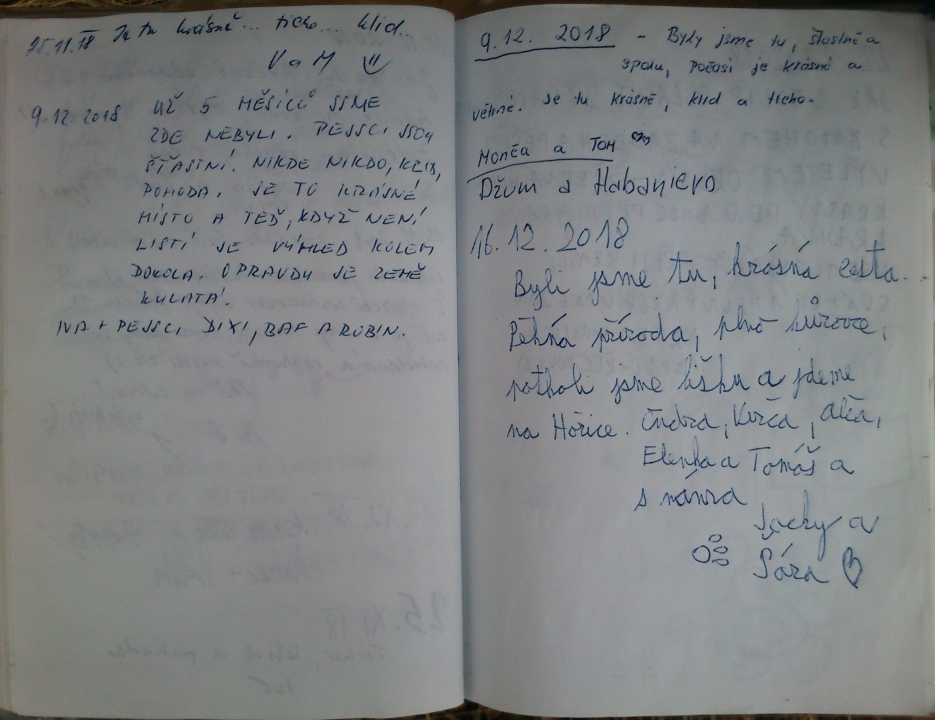 25.11.18 Je tu krásně... ticho... klid.
V a M
9.12 2018 UŽ 5 MĚSÍCŮ JSME
ZDE NEBYLI. PEJSCI JSOU
ŠŤASTNÍ. NIKDE NIKDO, KLID,
POHODA. JE TO KRÁSNÉ
MÍSTO A TEĎ, KDYŽ NENÍ
LISTÍ JE VÝHLED KOLEM
DOKOLA. OPRAVDU JE ZEMĚ
KULATÁ.
IVA + PEJSCI, DIXI, BAF A ROBIN.
9.12. 2018 - Byly jsme tu, šťastně a
spolu, počasí je krásné a
větrné. Je tu krásně, klid a ticho.
Monča a Tom
Džum a Habanjero
16.12.2018
Byli jsme tu, krásná cesta.
Pěkná příroda, plno
potkali jsme lišku a jdeme
na Hořice. Jindra, Verča, Alča,
Elenka a Tomáš a
s náma
Jacky a
Sára
Ticho, klid a pohoda
25. XI 18